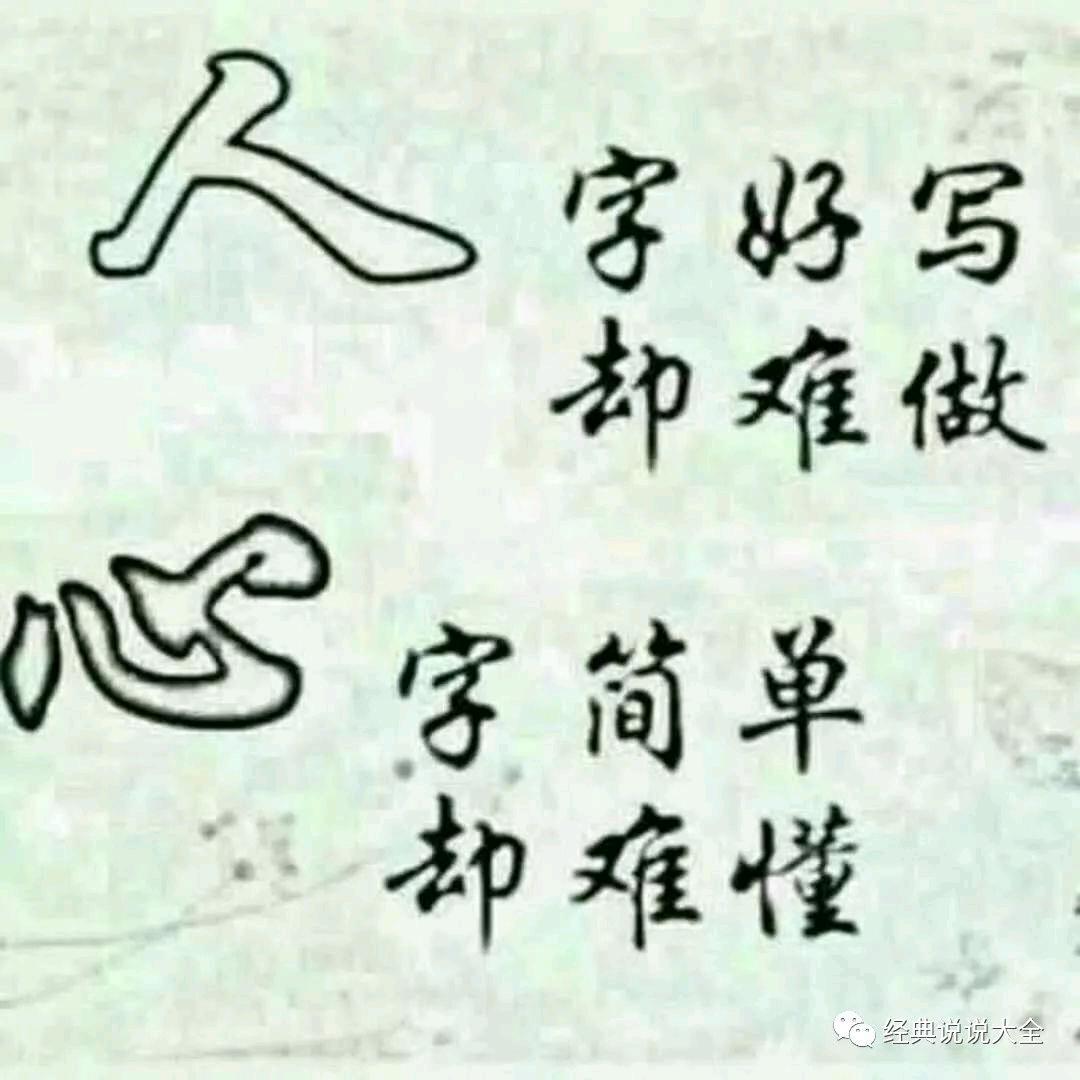 人字好写
却难做
心字简单
却难懂
经典说说大全